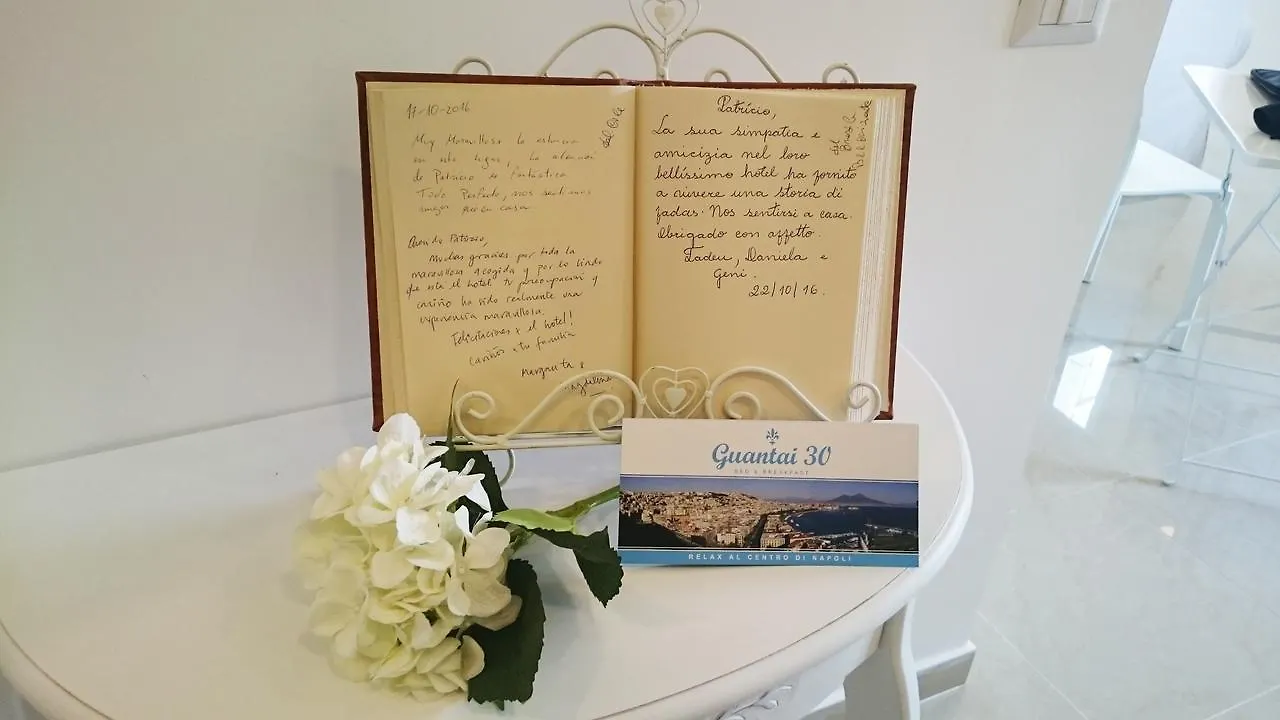 17-10-2016
del Chile
Muy Maravillosa la estancia
en este lugar, la atencion
de Patricio es fantástica
Todo Perfecto, nos sentimos
mejor que en casa.
Querido Patricio,
Muchas gracias por toda la
maravillosa acogida y por lo lindo
que esta el hotel, tu preocupacion y
cariño ha sido realmente una
experiencia maravillosa.
Felicitaciones x el hotel!
Cariños a tu familia
Margarita &
Patricio,
La sua simpatia e
amicizia nel loro
bellissimo hotel ha fornito
a vivere una storia di
fadas. Nos sentirsi a casa.
Obrigado con affetto.
Tadeu, Daniela e
Geni.
22/10/16.
del
Brasile
Guantai 30
BED & BREAKFAST
RELAX AL CENTRO DI NAPOLI